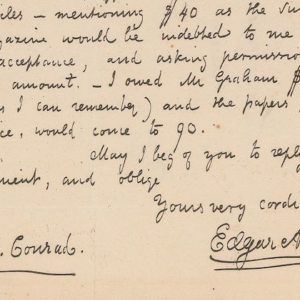 les — mentioning $40 as the su
azine would be indebted to me
acceptance, and asking permissio
amount. — I owed Mr Graham $
s I can remember) and the papers
ce, would come to 90.
May I beg of you to reply
ment, and oblige
Yours very cordi
. Conrad.
Edgar A